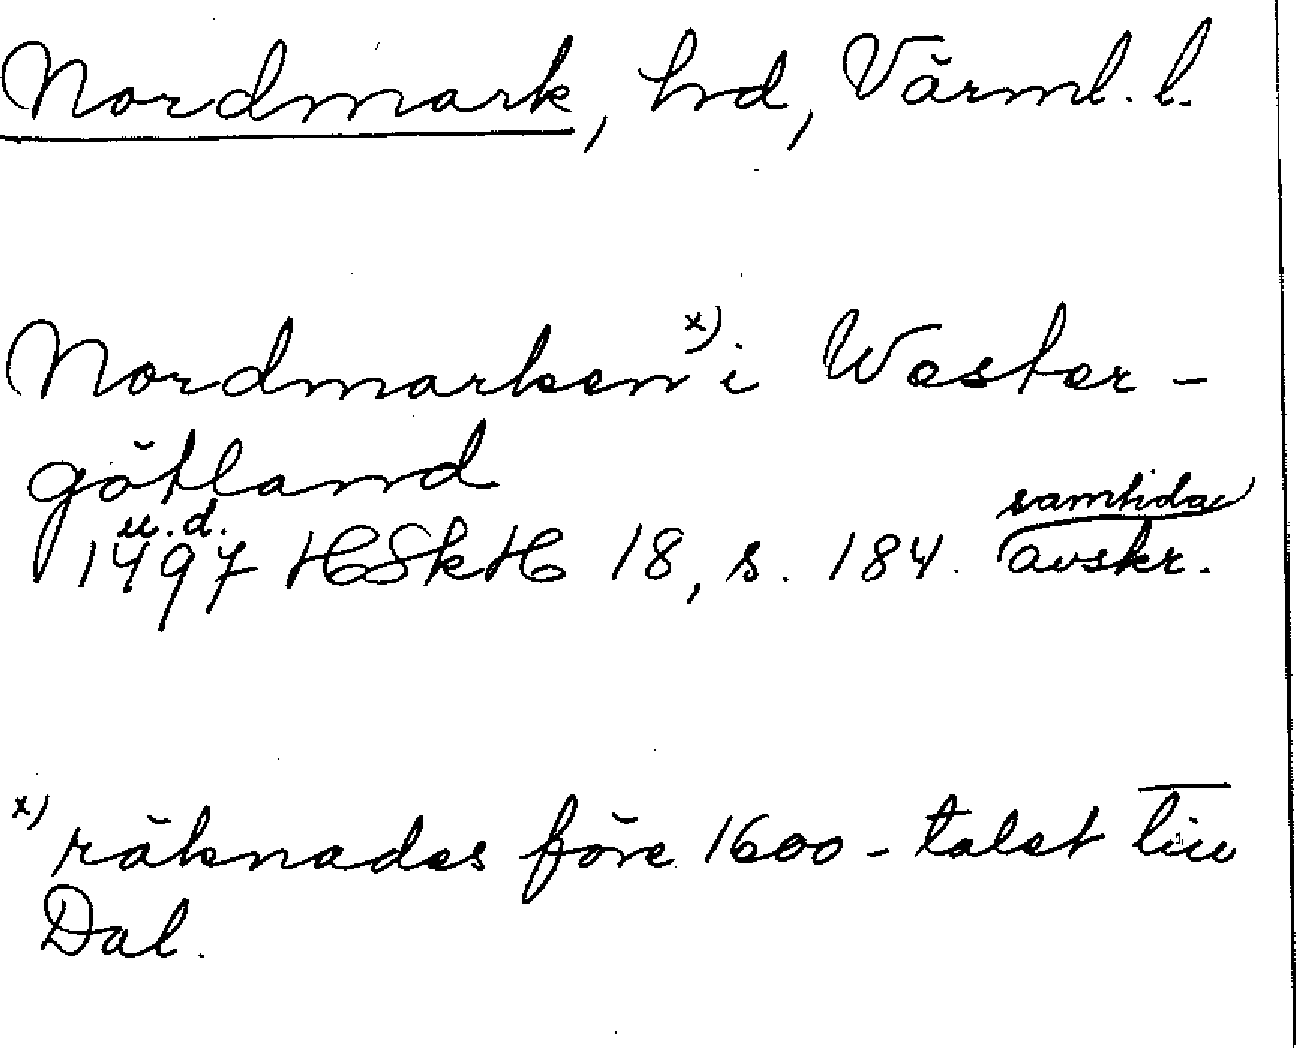 Nordmark, hd, Värml. l.
Nordmarken x) i Wester-
götland
u. d. samtida
1497 HSkH 18, s. 184. avskr.
x) räknades före 1600-talet till
Dal.